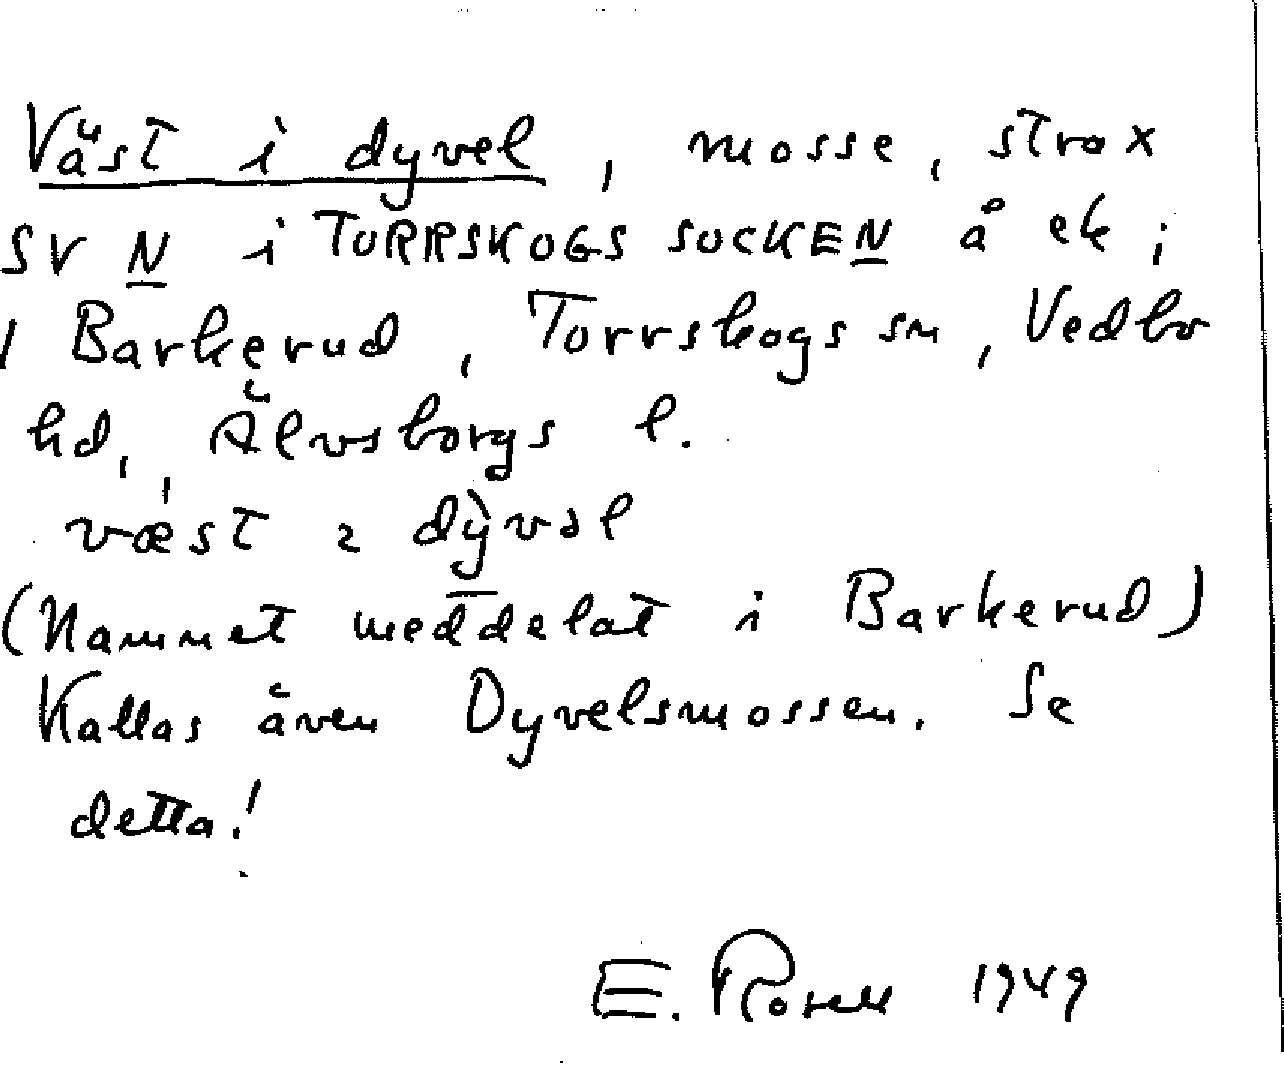 Väst i dyvel, mosse, strax
SV N i TORRSKOGS SOCKEN å ek;
I Barkerud, Torrskogs sn, Vedbo
hd, Älvsborgs l.
væ̍st ɩ dy̖vəl
(Namnet meddelat i Barkerud)
Kallas även Dyvelsmossen. Se
detta!
E. Rosell 1949